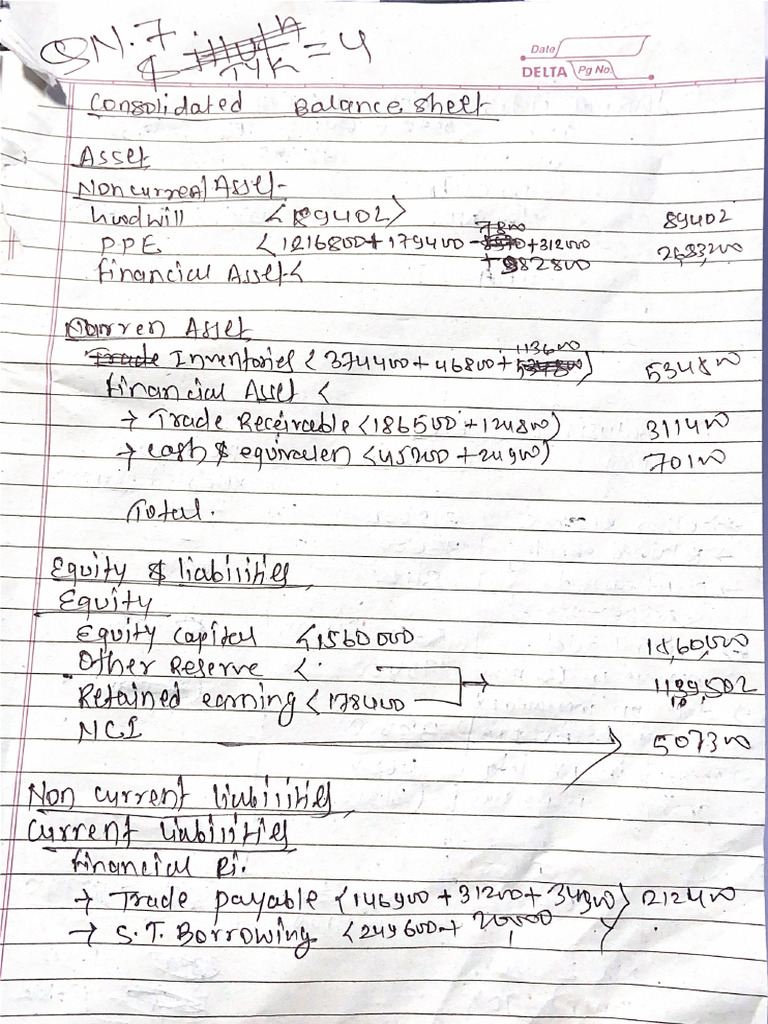 QN.7
= 4
Date
DELTA Pg No.
Consolidated Balance Sheet
Asset
Non current Asset-
89402
P.P.E. <1216800+179400 7800 +312000 +982800
financial Asset <
Asset
Inventories <374400+46800+113600) 534800
financial Asset <
→ Trade Receivable <186500+124800) 311400
→ Cash & equivalen <45200+24900) 70100
Total.
Equity & liabilities
Equity
Equity capital <1560000
Other Reserve <
Retained earning <178400 → 1189502
NCI 507300
Non current liabilities
Current liabilities
financial
→ Trade payable <146900+31200+34300) 212400
→ S.T. Borrowing <249600+ 20000